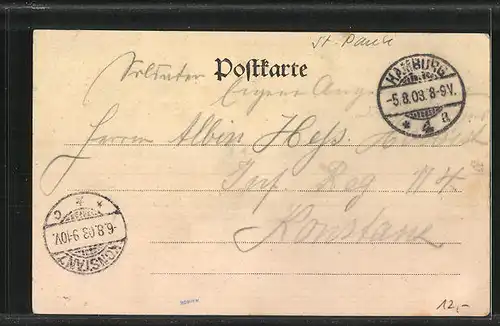 St. Pauli
Postkarte
HAMBURG
-5.8.03. 8-9V.
* 4 a
Soldaten
Eigene Ang
Herrn Albin Hess
Inf. Reg 114
Konstanz
KONSTANZ
-6.8.03 9-10V.
* * C
12,-